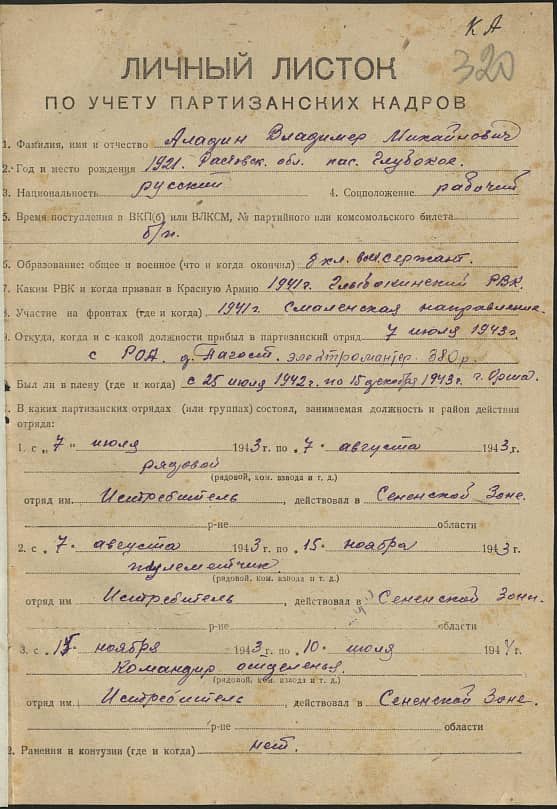 К А
320
ЛИЧНЫЙ ЛИСТОК
ПО УЧЕТУ ПАРТИЗАНСКИХ КАДРОВ
1. Фамилия, имя и отчество Аладин Владимер Михайлович
2. Год и место рождения 1921. Растовск. обл. пас. Глубокое.
3. Национальность русский 4. Соцположение рабочий
5. Время поступления в ВКП(б) или ВЛКСМ, № партийного или комсомольского билета
б/п.
6. Образование: общее и военное (что и когда окончил) 8 кл. сержант.
7. Каким РВК и когда призван в Красную Армию 1941г. Глыбокинский РВК.
8. Участие на фронтах (где и когда) 1941г. Смаленская направление.
9. Откуда, когда и с какой должности прибыл в партизанский отряд 7 июля 1943г.
с РОА д. Пагост. электромантер
Был ли в плену (где и когда) с 25 июля 1942г. по 15 декабря 1943г. г. Орша.
В каких партизанских отрядах (или группах) состоял, занимаемая должность и район действия
отряда:
1. с „ 7 " июля 1943 г. по „ 7 " августа 1943 г.
рядовой
(рядовой, ком. взвода и т. д.)
отряд им. Истребитель, действовал в Сененской Зоне.
р-не области
2. с „ 7 " августа 1943 г. по „ 15 " ноября 1943 г.
пулеметчик
(рядовой, ком. взвода и т. д.)
отряд им Истребитель, действовал в Сененской Зони.
р-не области
3. с „ 15 " ноября 1943 г. по „ 10 " июля 1944 г.
Командир отделенья.
(рядовой, ком. взвода и т. д.)
отряд им. Истребитель, действовал в Сененской Зоне.
р-не области
2. Ранения и контузии (где и когда) нет.